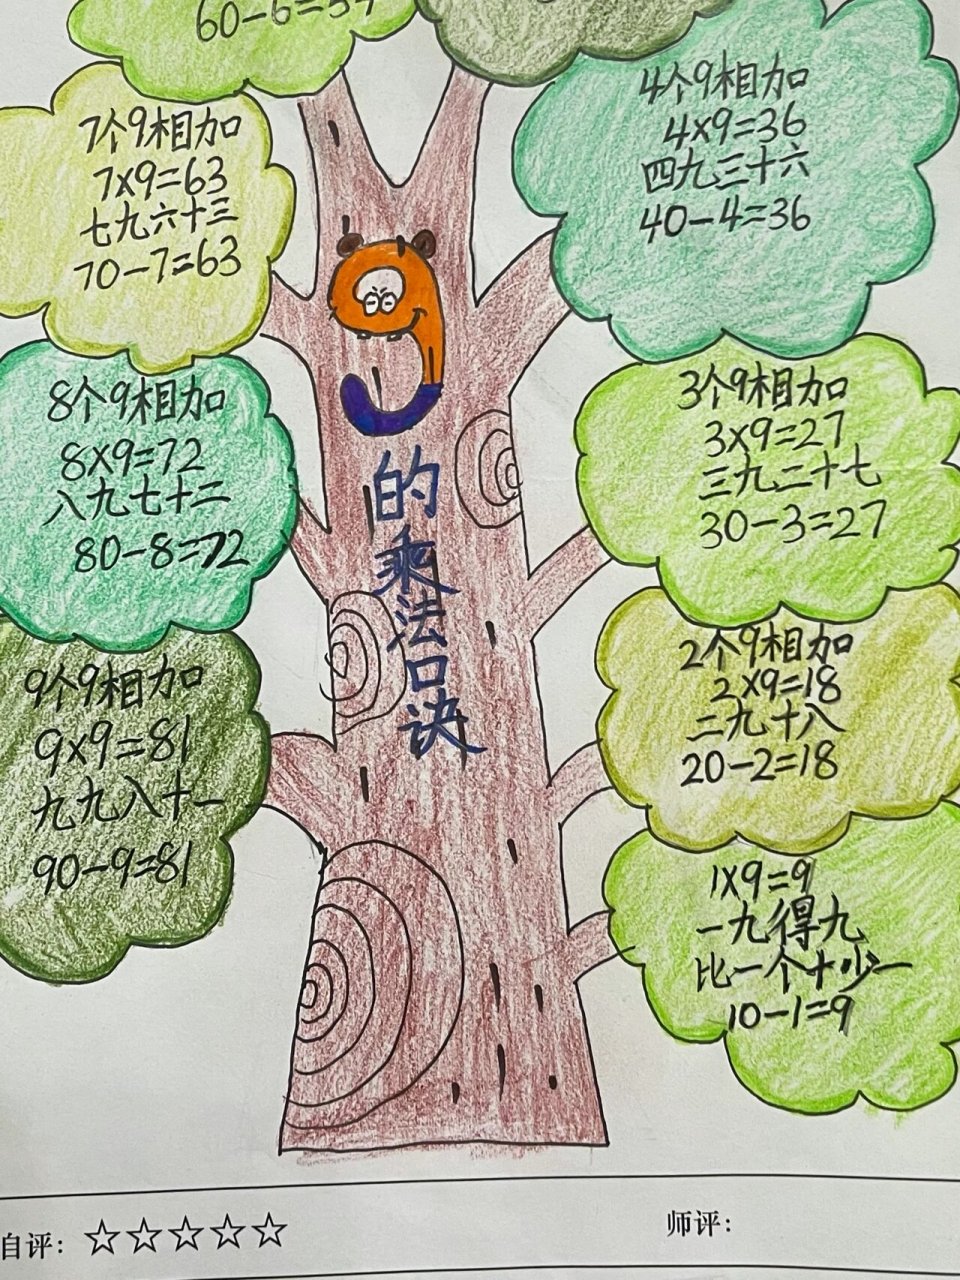 60-6=54
7个9相加
7×9=63
七九六十三
70-7=63
8个9相加
8×9=72
八九七十二
80-8=72
9个9相加
9×9=81
九九八十一
90-9=81
9
的乘法口诀
4个9相加
4×9=36
四九三十六
40-4=36
3个9相加
3×9=27
三九二十七
30-3=27
2个9相加
2×9=18
二九十八
20-2=18
1×9=9
一九得九
比一个十少一
10-1=9
自评：☆☆☆☆☆
师评：